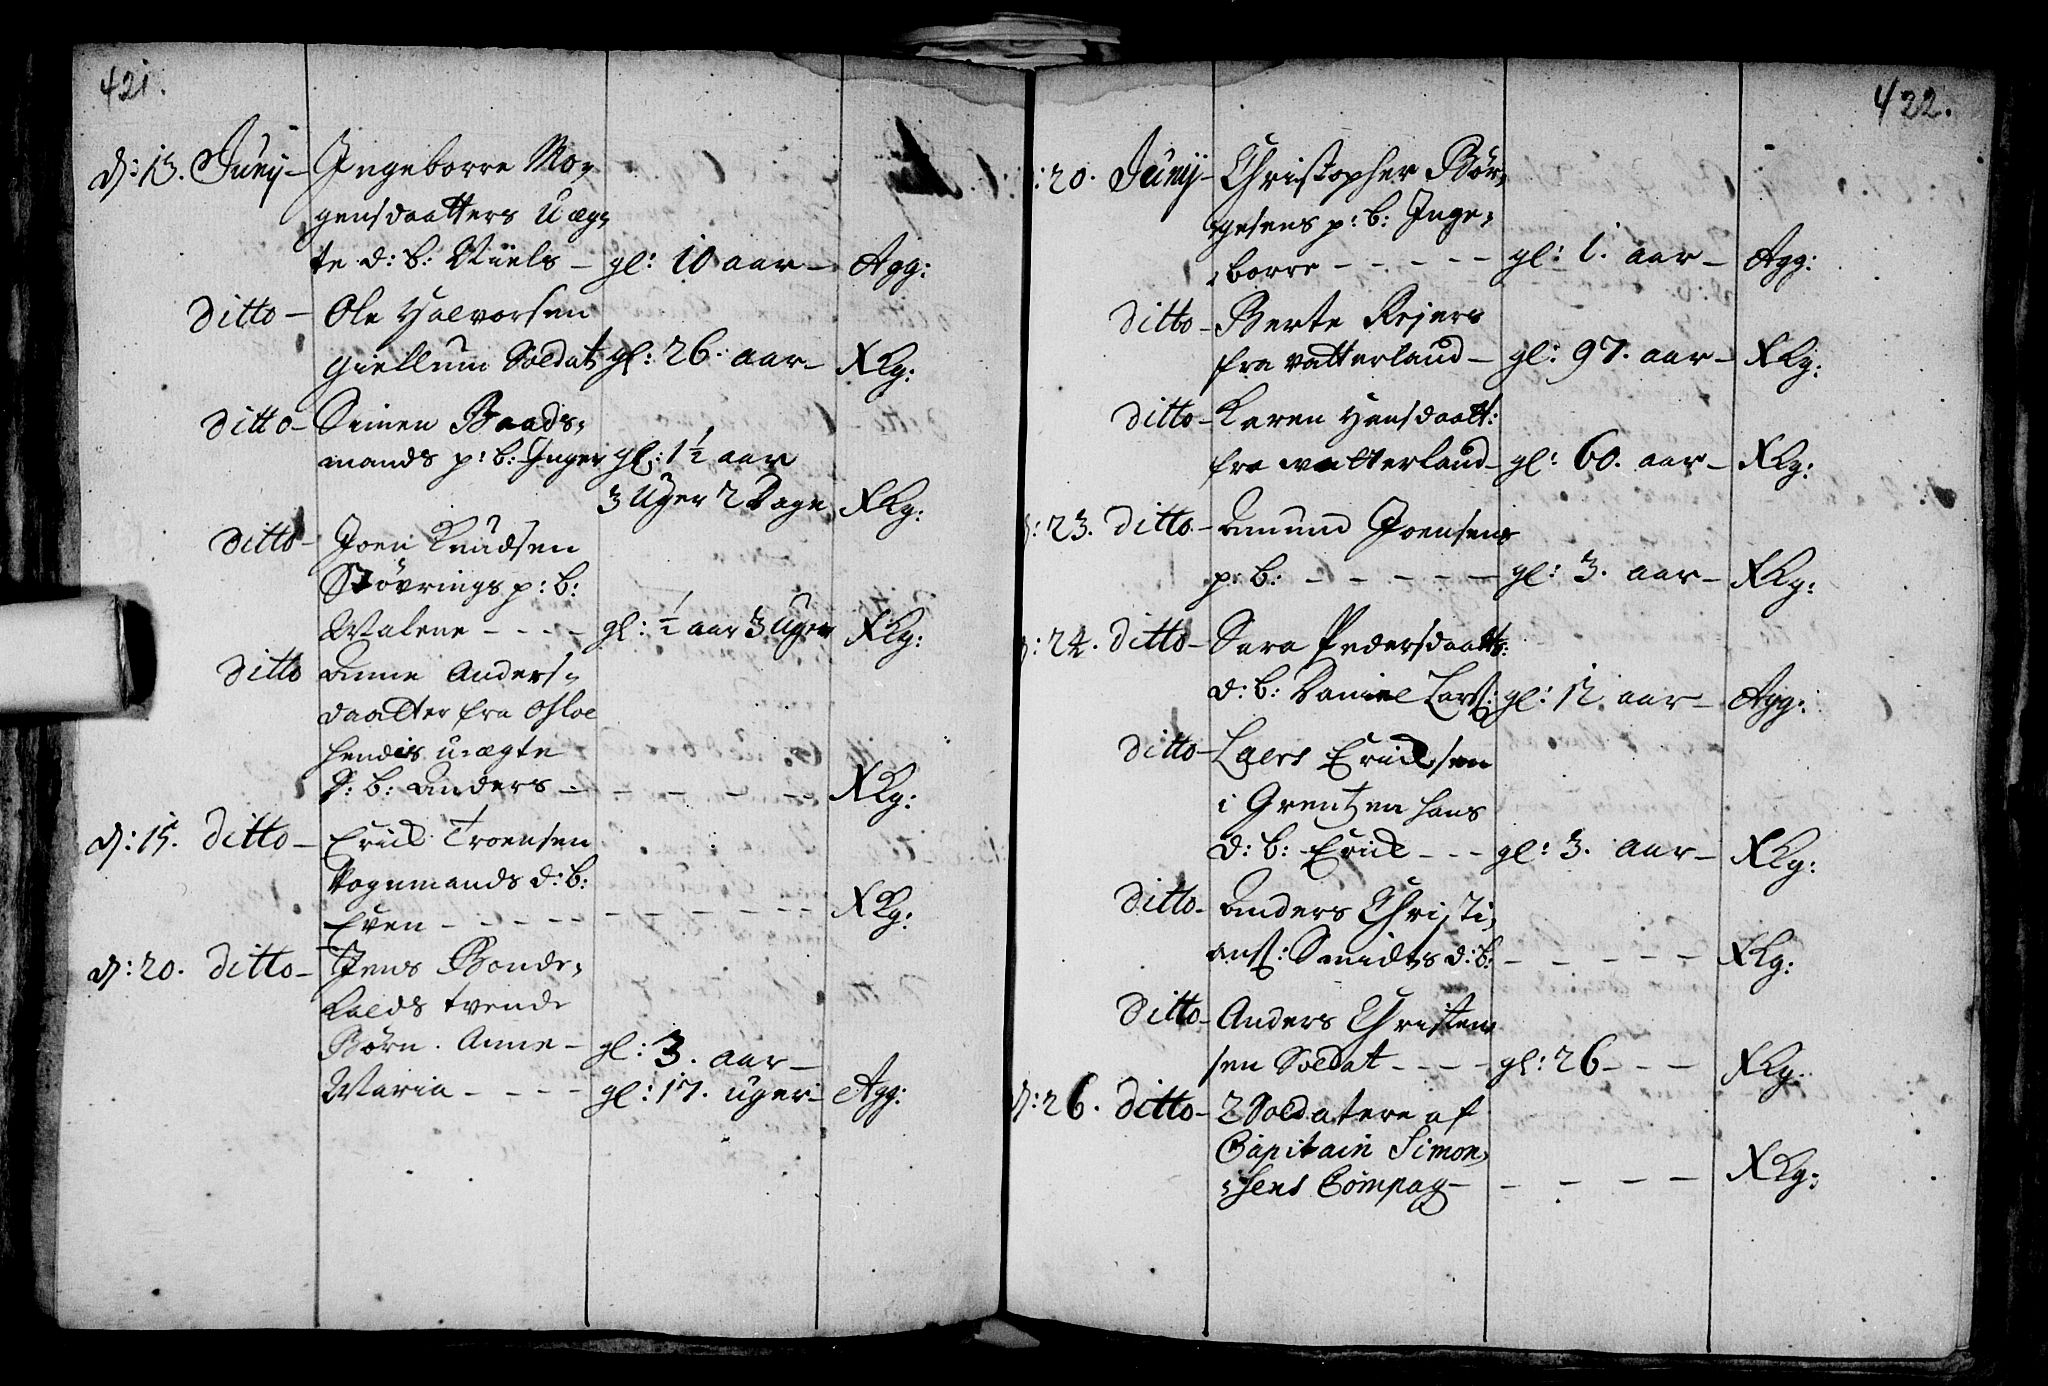 421.
d: 13. Junij – Ingeborre Mo,,
gensdaatters Uæg,,
te d: b: Niels – gl: 10 aar – Agg:
Ditto – Ole Halvorsen
Giellum Soldat gl: 26. aar – XKg:
Ditto – Simen Baads,,
mands p: b: Inger gl: 1½ aar
3 Uger 2 Dage XKg:
Ditto – Joen Knudsen
Støvrings p: b:
Malene – – – – gl: ½ aar 3 Uger XKg:
Ditto Anne Anders,,
daatter fra Osloe
hendis uægte
d: b: Anders – – – – – – XKg:
d: 15. Ditto – Erick Troensen
Vognmands d: b:
Even – – – – – – – – – XKg:
d: 20. Ditto – Jens Bonde,,
kalds tvende
Børn. Anne – gl: 3. aar –
Maria – – – – gl: 17. uger – Agg:
422.
: 20. Junij – Christopher Bør,,
gesens p: b: Inge,,
,,borre – – – – – gl: 1. aar – Agg:
Ditto – Berte Rejers
fra Vatterland – gl: 97. aar – XKg:
Ditto – Karen Hansdaatt:
fra Watterland – gl: 60. aar – XKg:
d: 23. Ditto – Amund Joensens
p: b: – – – – – gl: 3. aar – XKg:
d: 24. Ditto – Sara Pedersdaatt:
d: b: Daniel Larß: gl: 12 aar – Agg:
Ditto – Laers Ericksen
i Grentzen hans
d: b: Erick – – – gl: 3. aar – XKg:
Ditto – Anders Christi,,
anß: Smidts d: b: – – – – – XKg:
Ditto – Anders Christen
sen Soldat – – – – gl: 26 – – – XKg:
d: 26. Ditto – 2 Soldatere af
Capitain Simon,,
,,sens Compag – – – – – XKg: